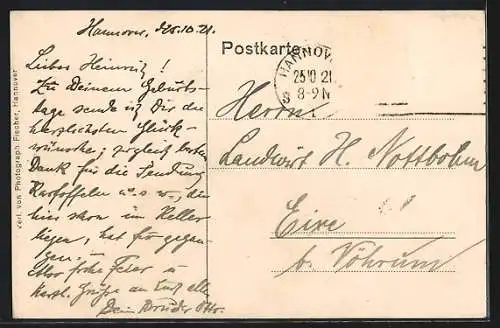 Hannover, d. 25.10.21.
Lieber Heinrich!
Zu Deinem Geburts-
tage sende ich Dir die
herzlichsten Glück-
wünsche; zugleich besten
Dank für die Sendung
Kartoffeln u.s.w., die
hier schon im Keller
liegen, hat
gen.
Also frohe Feier u
herzl. Grüße an Euch alle
Dein Bruder Otto.
Verl. von Photograph Fischer, Hannover
Postkarte
HANNOVER
25 10 21
8-9N
Herrn
Landwirt H. Nottbohm
Eixe
b. Vöhrum